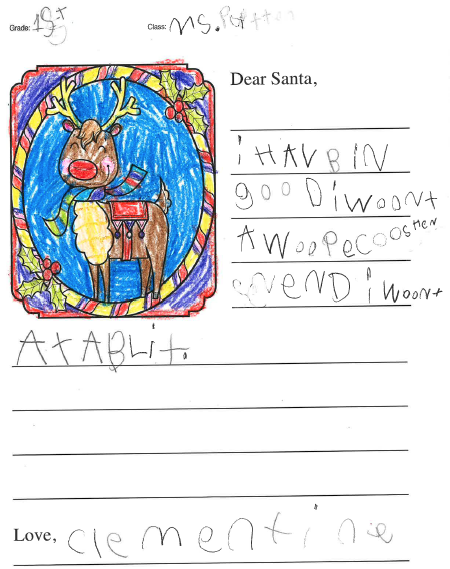 Grade: 1st
Class: Ms.
Dear Santa,
i HAV BiN
gooD i WOONt
A WOOPeCOOSHeN
eND i WOONt
AtABLit.
Love, clementine